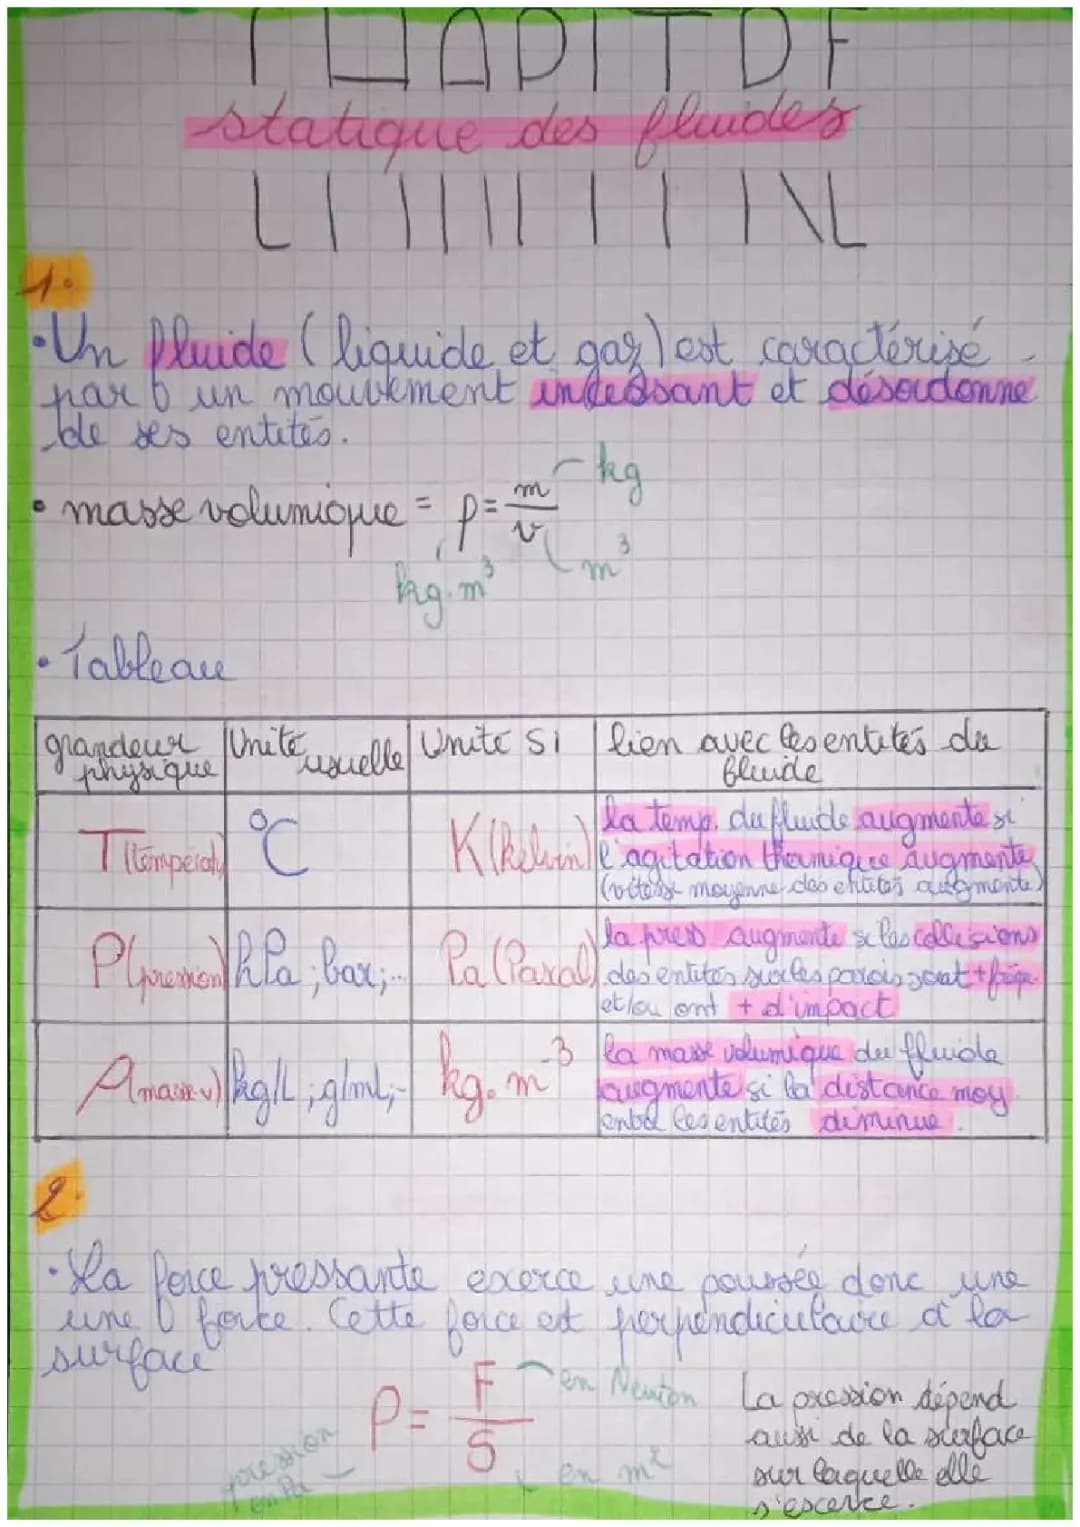 statique des fluides
1.
• Un fluide (liquide et gaz) est caractérisé
par un mouvement incessant et désordonne
de ses entités.
• masse volumique = ρ = m/v
kg
kg.m³
m³
• Tableau
grandeur physique | Unité usuelle | Unité SI | lien avec les entités du fluide
T (température) | °C | K (Kelvin) | la temp. du fluide augmente si
l'agitation thermique augmente
(vitesse moyenne des entités augmente)
P (pression) | hPa ; bar ; ... | Pa (Pascal) | la press augmente si les collisions
des entités sur les parois sont + fréq
et/ou ont + d'impact
ρ (masse v) | kg/L ; g/mL ; - | kg.m⁻³ | la masse volumique du fluide
augmente si la distance moy
entre les entités diminue.
2.
• La force pressante exerce une poussée donc une
une force. Cette force est perpendiculaire à la
surface
P = F/S
en Newton
pression en Pa
en m²
La pression dépend
aussi de la surface
sur laquelle elle
s'exerce.